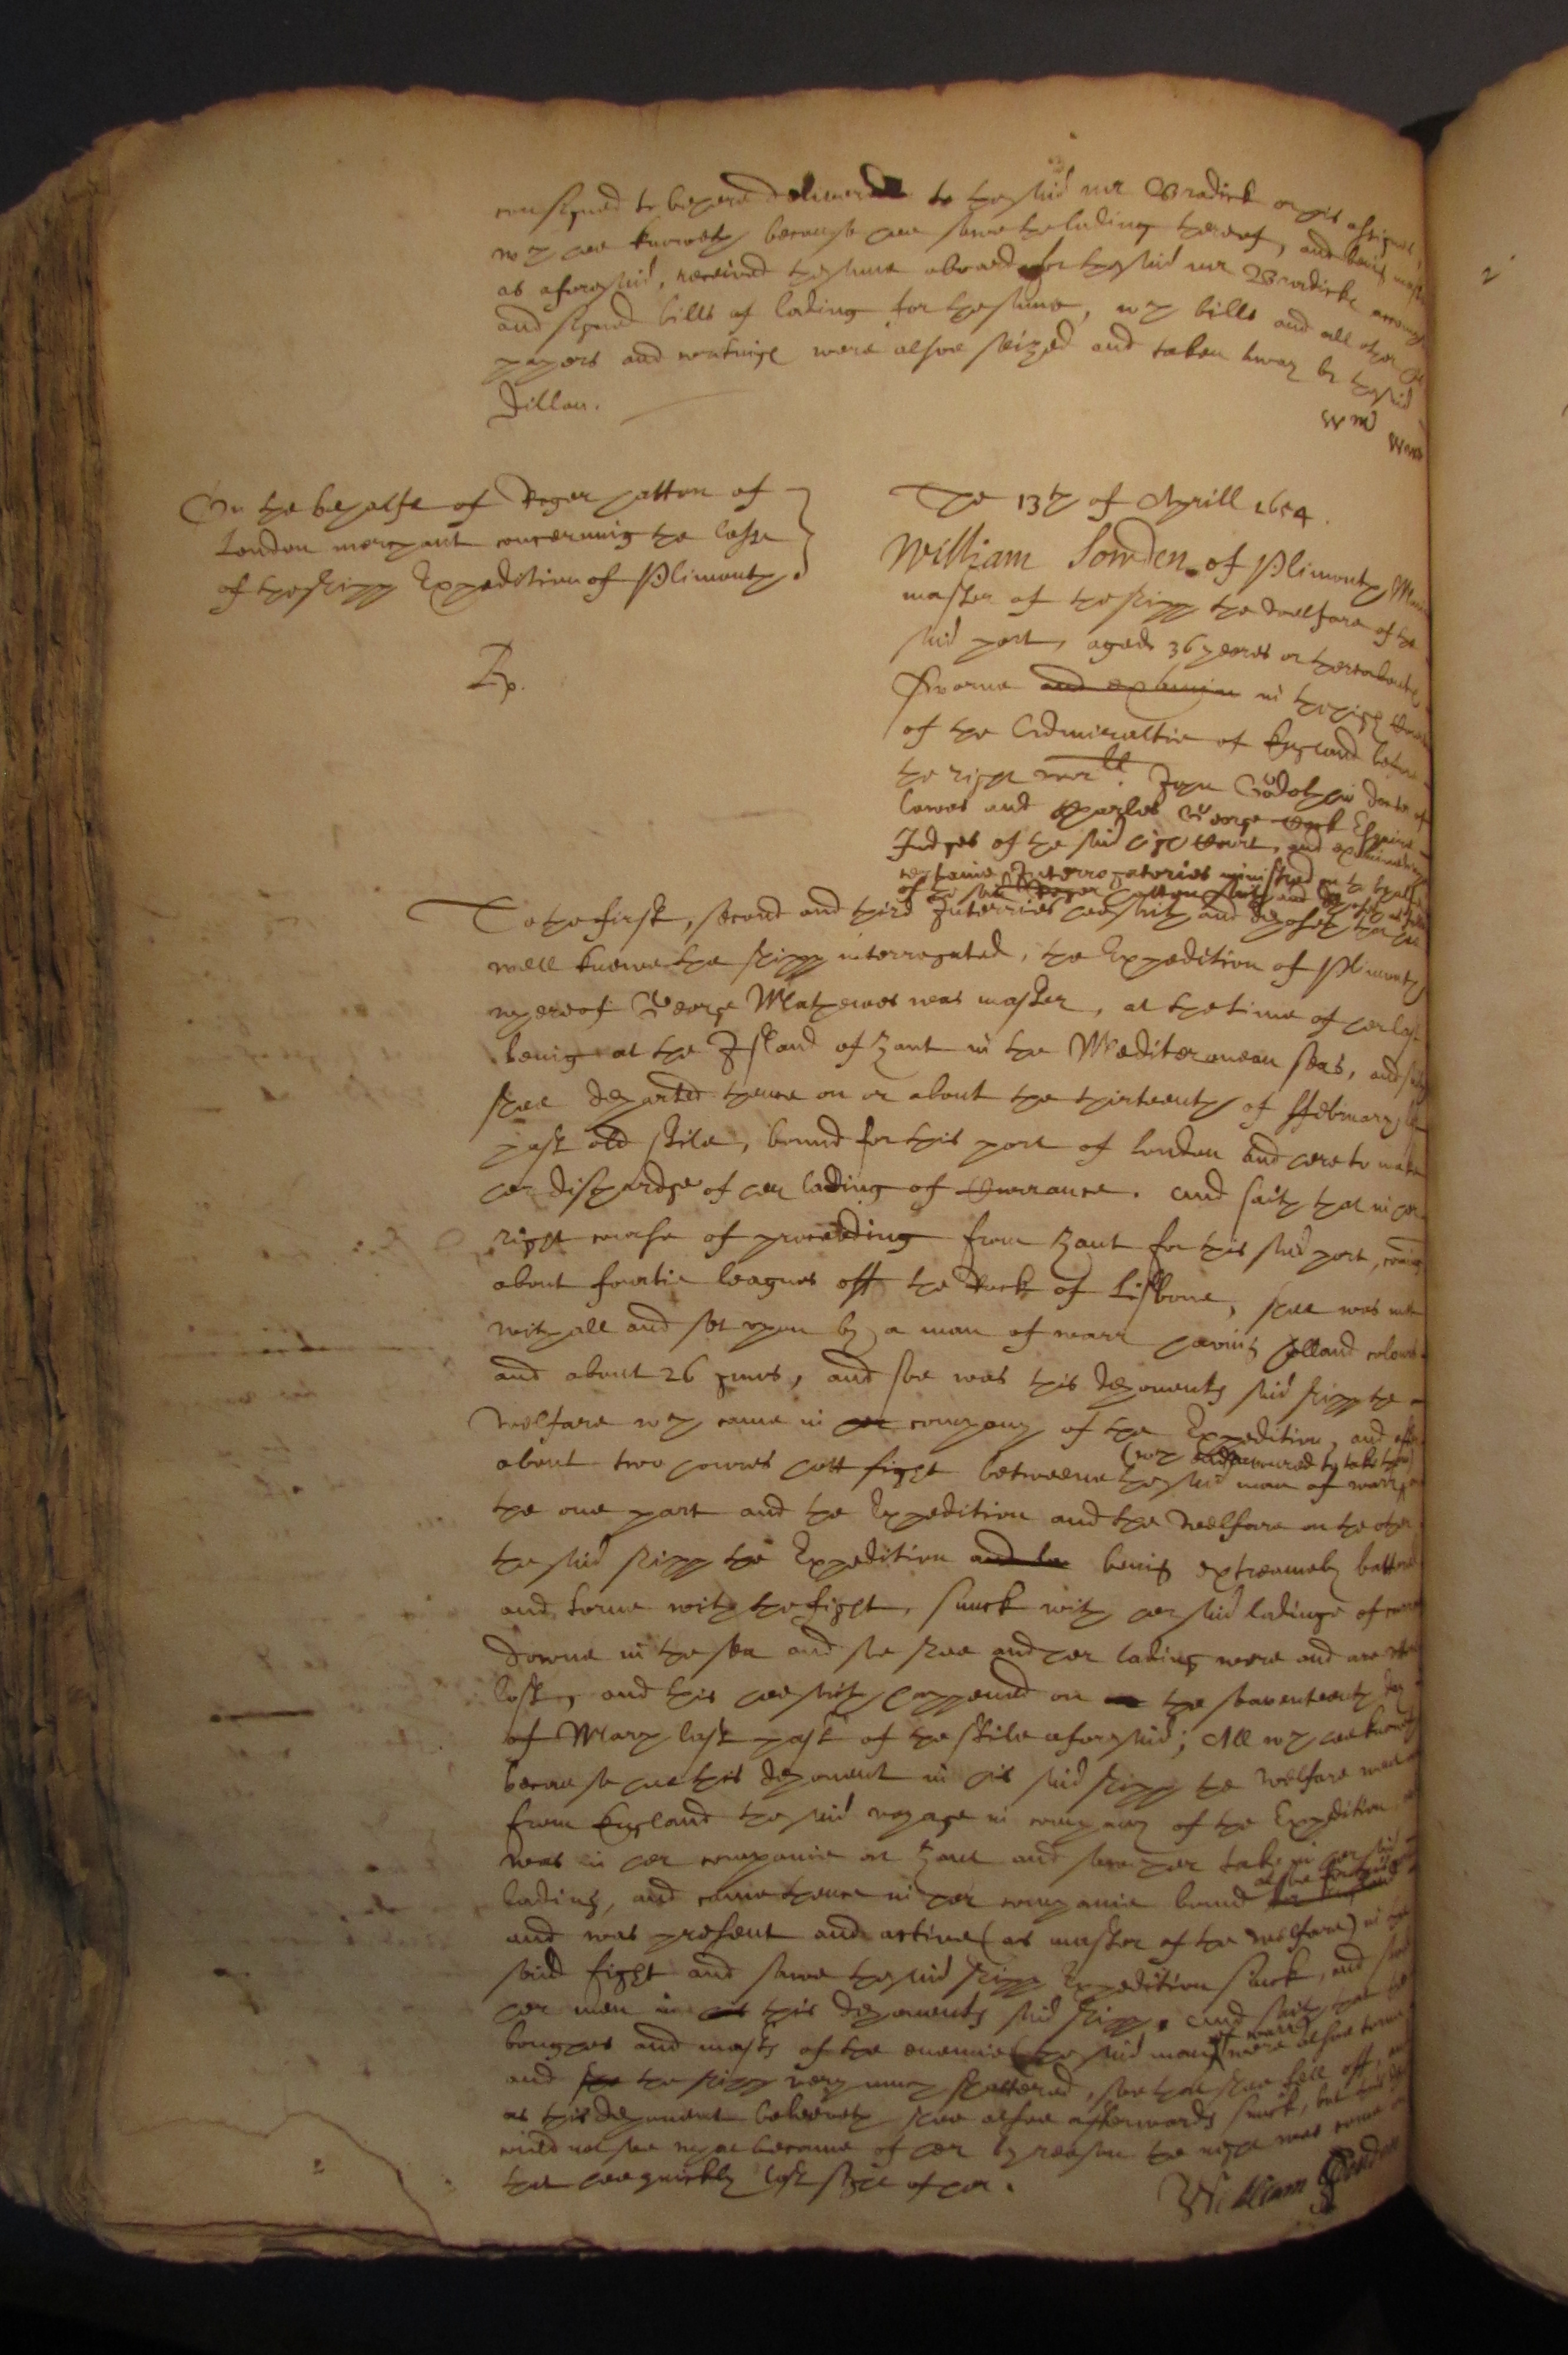 consigned to be here delivered to the said mr Bradick or his assignes,
wch hee knoweth because hee sawe the lading thereof, and being master
as aforesaid, received the same aboard for the said mr Bradicks accompt
and signed bills of lading for the same, wch bills and all other
papers and writings were alsoe seized and taken away by the said
Dillon.
Wm
On the behalfe of Roger patton of
London merchant concerning the losse
of the shipp Expedition of Plimouth.
The 13th of Aprill 1654.
William Sowden of Plimouth
master of the shipp the Welfare of the
said port, aged 36 yeares or thereabouts
Sworne and examin in the high Court
of the Admiraltie of England before
the right worll. John Godolphin Doctor of
lawes and Charles George Cock Esquire
Judges of the said high Court, and examined
certaine Interrogatories ministred on the behalfe
of the said Roger patton saith and
To the first, second and third Interries hee saith and deposeth that hee
well knewe the shipp interrogated, the Expedition of Plimouth
whereof George Mathewes was master, at the time of her losse
being at the Island of Zant in the Mediteranean seas, and saith
shee departed thence on or about the thirteenth of ffebruary
past old stile, bound for this port of London and here to make
her discharge of her lading of Currance. And saith that in her
right course of proceeding from Zant for this said port, coming
about fourtie leagues off the Rock of Lisbone, shee was mett
withall and set upon by a man of warr having holland colours
and about 26 guns, and soe was this deponents said shipp the
Welfare wch came in her company of the Expedition, and after
(wch endeavoured to take them)
about two howres hott fight betweene the said man of warr, on
the one part and the Expedition and the Welfare on the other
the said shipp the Expedition and being extreamely battered
and torne with the fight, sunck with her said ladinge of
downe in the sea and soe shee and her lading were and are
lost, and this hee saith happened on the seaventeenth day
of March last past of the stile aforesaid; All wch hee knoweth
because hee this deponent in his said shipp the Welfare went
from England the said voyage in company of the Expedition
was in her companie at Zant and sawe her take in her said
alsoe for England
lading, and came thence in her companie bound for
and was present and active (as master of the Welfare) in the
said fight and sawe the said shipp Expedition sinck, and
her men in his this deponents said shipp. And saith that the
of warr
boughes and masts of the enemie the said man were alsoe torne
and the shipp very much shattered, soe that shee fell off, and
as this deponent beleeveth shee alsoe afterwards sunck, but
could not see what became of her by reason the night was come
that hee quickly lost sight of her.
William Sowden